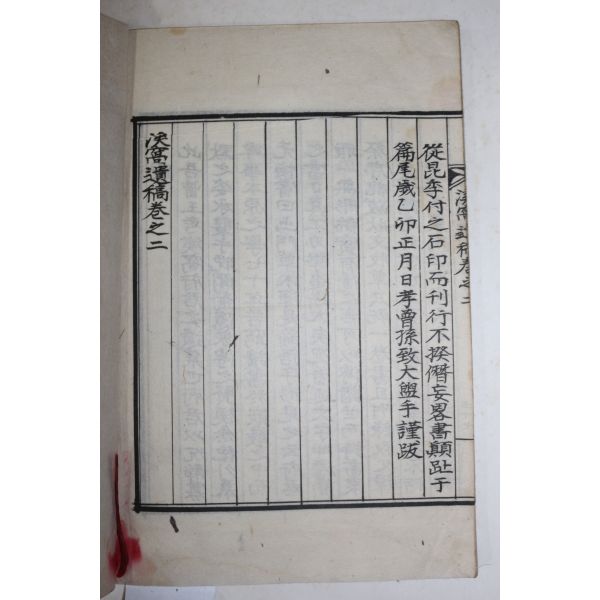 淡窩遺稿卷之二
從昆季付之石印而刊行不揆僭妄畧書顚趾于
篇尾歲乙卯正月日孝曾孫致大盥手謹跋
淡窩遺稿卷之二